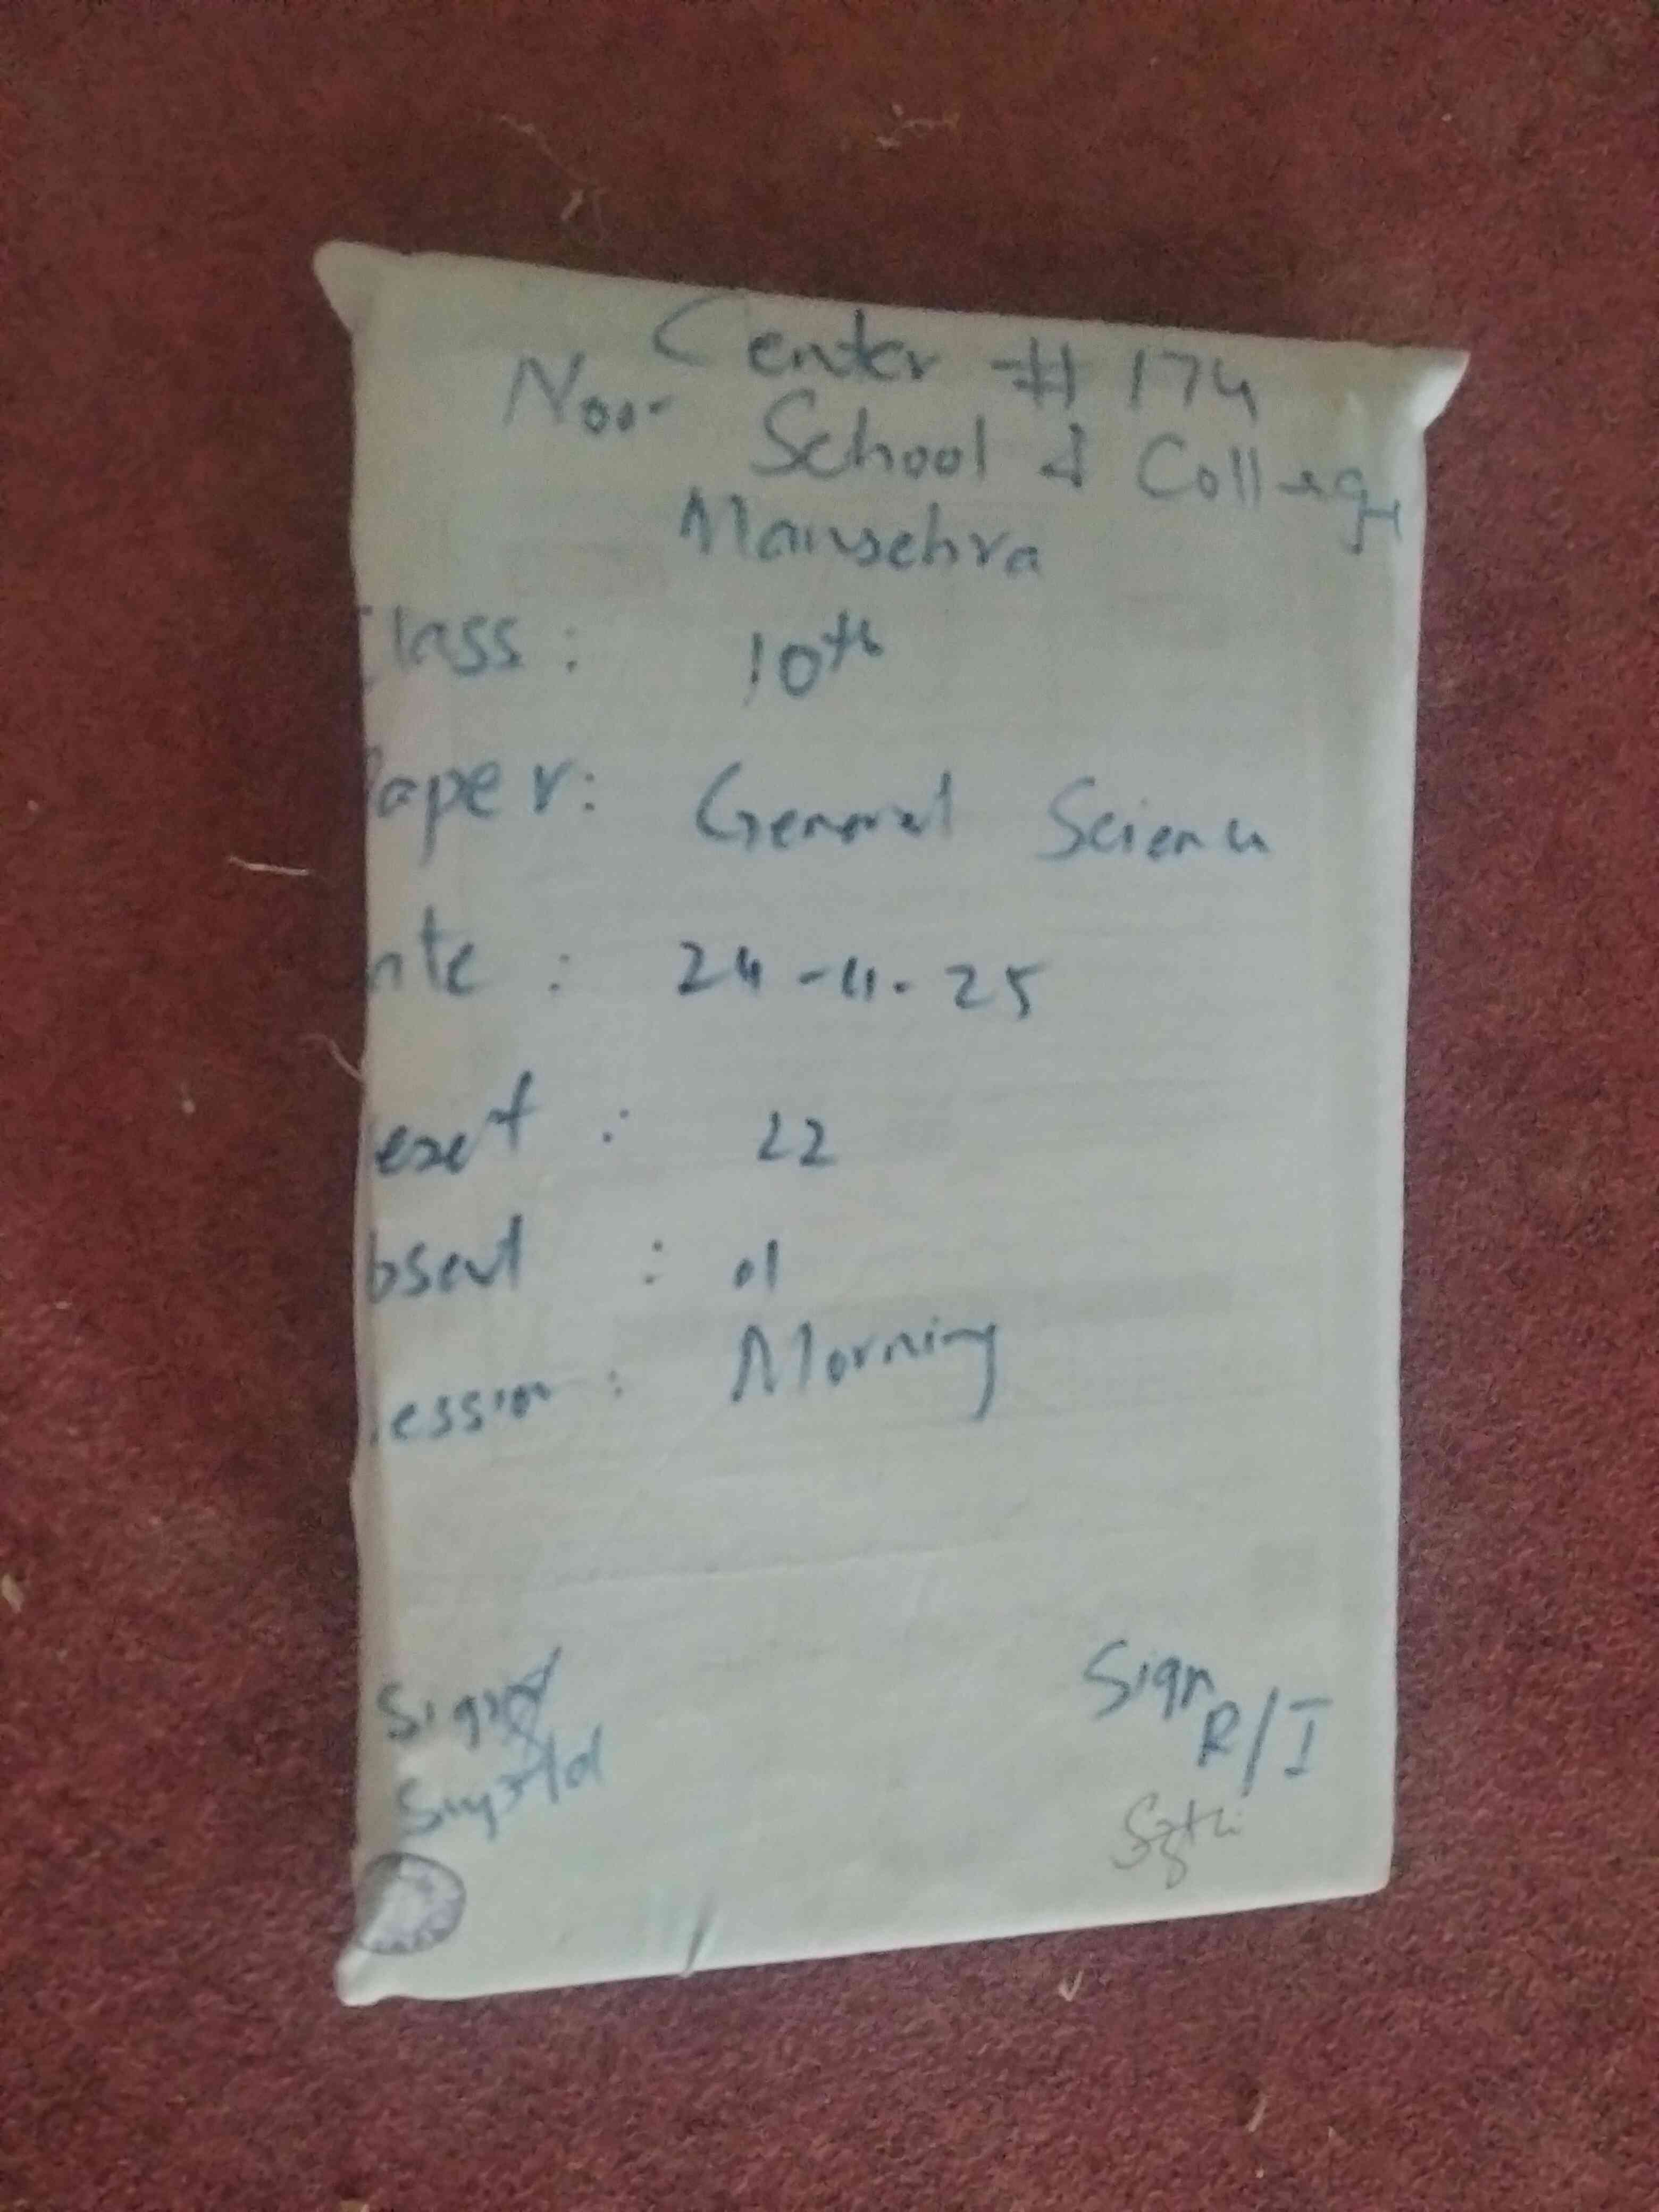 Center # 174
Noor School & College
Mansehra
Class : 10th
Paper: General Science
ate : 24-11-25
esent : 22
bsent : 01
ession : Morning
Sign
Suptd
Sign
R/I